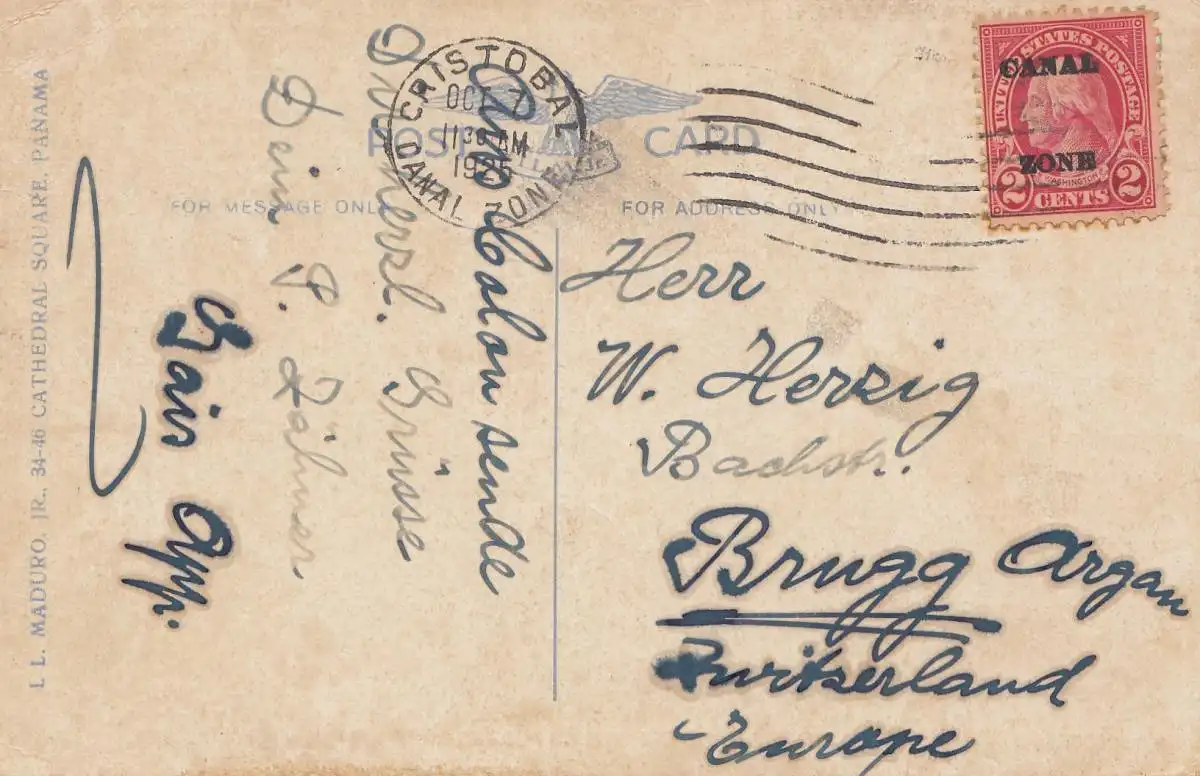 L. L. MADURO, JR., 34-46 CATHEDRAL SQUARE, PANAMA
POST CARD
FOR MESSAGE ONLY
FOR ADDRESS ONLY
CRISTOBAL
OCT 7
1130 AM
CANAL ZONE
UNITED STATES POSTAGE
CANAL
ZONE
WASHINGTON
2 CENTS 2
Aus Colon sende
Dir herzl. Grüsse
Dein
Herr
W. Herzig
Bachstr.
Brugg Argau
Switzerland
Europe